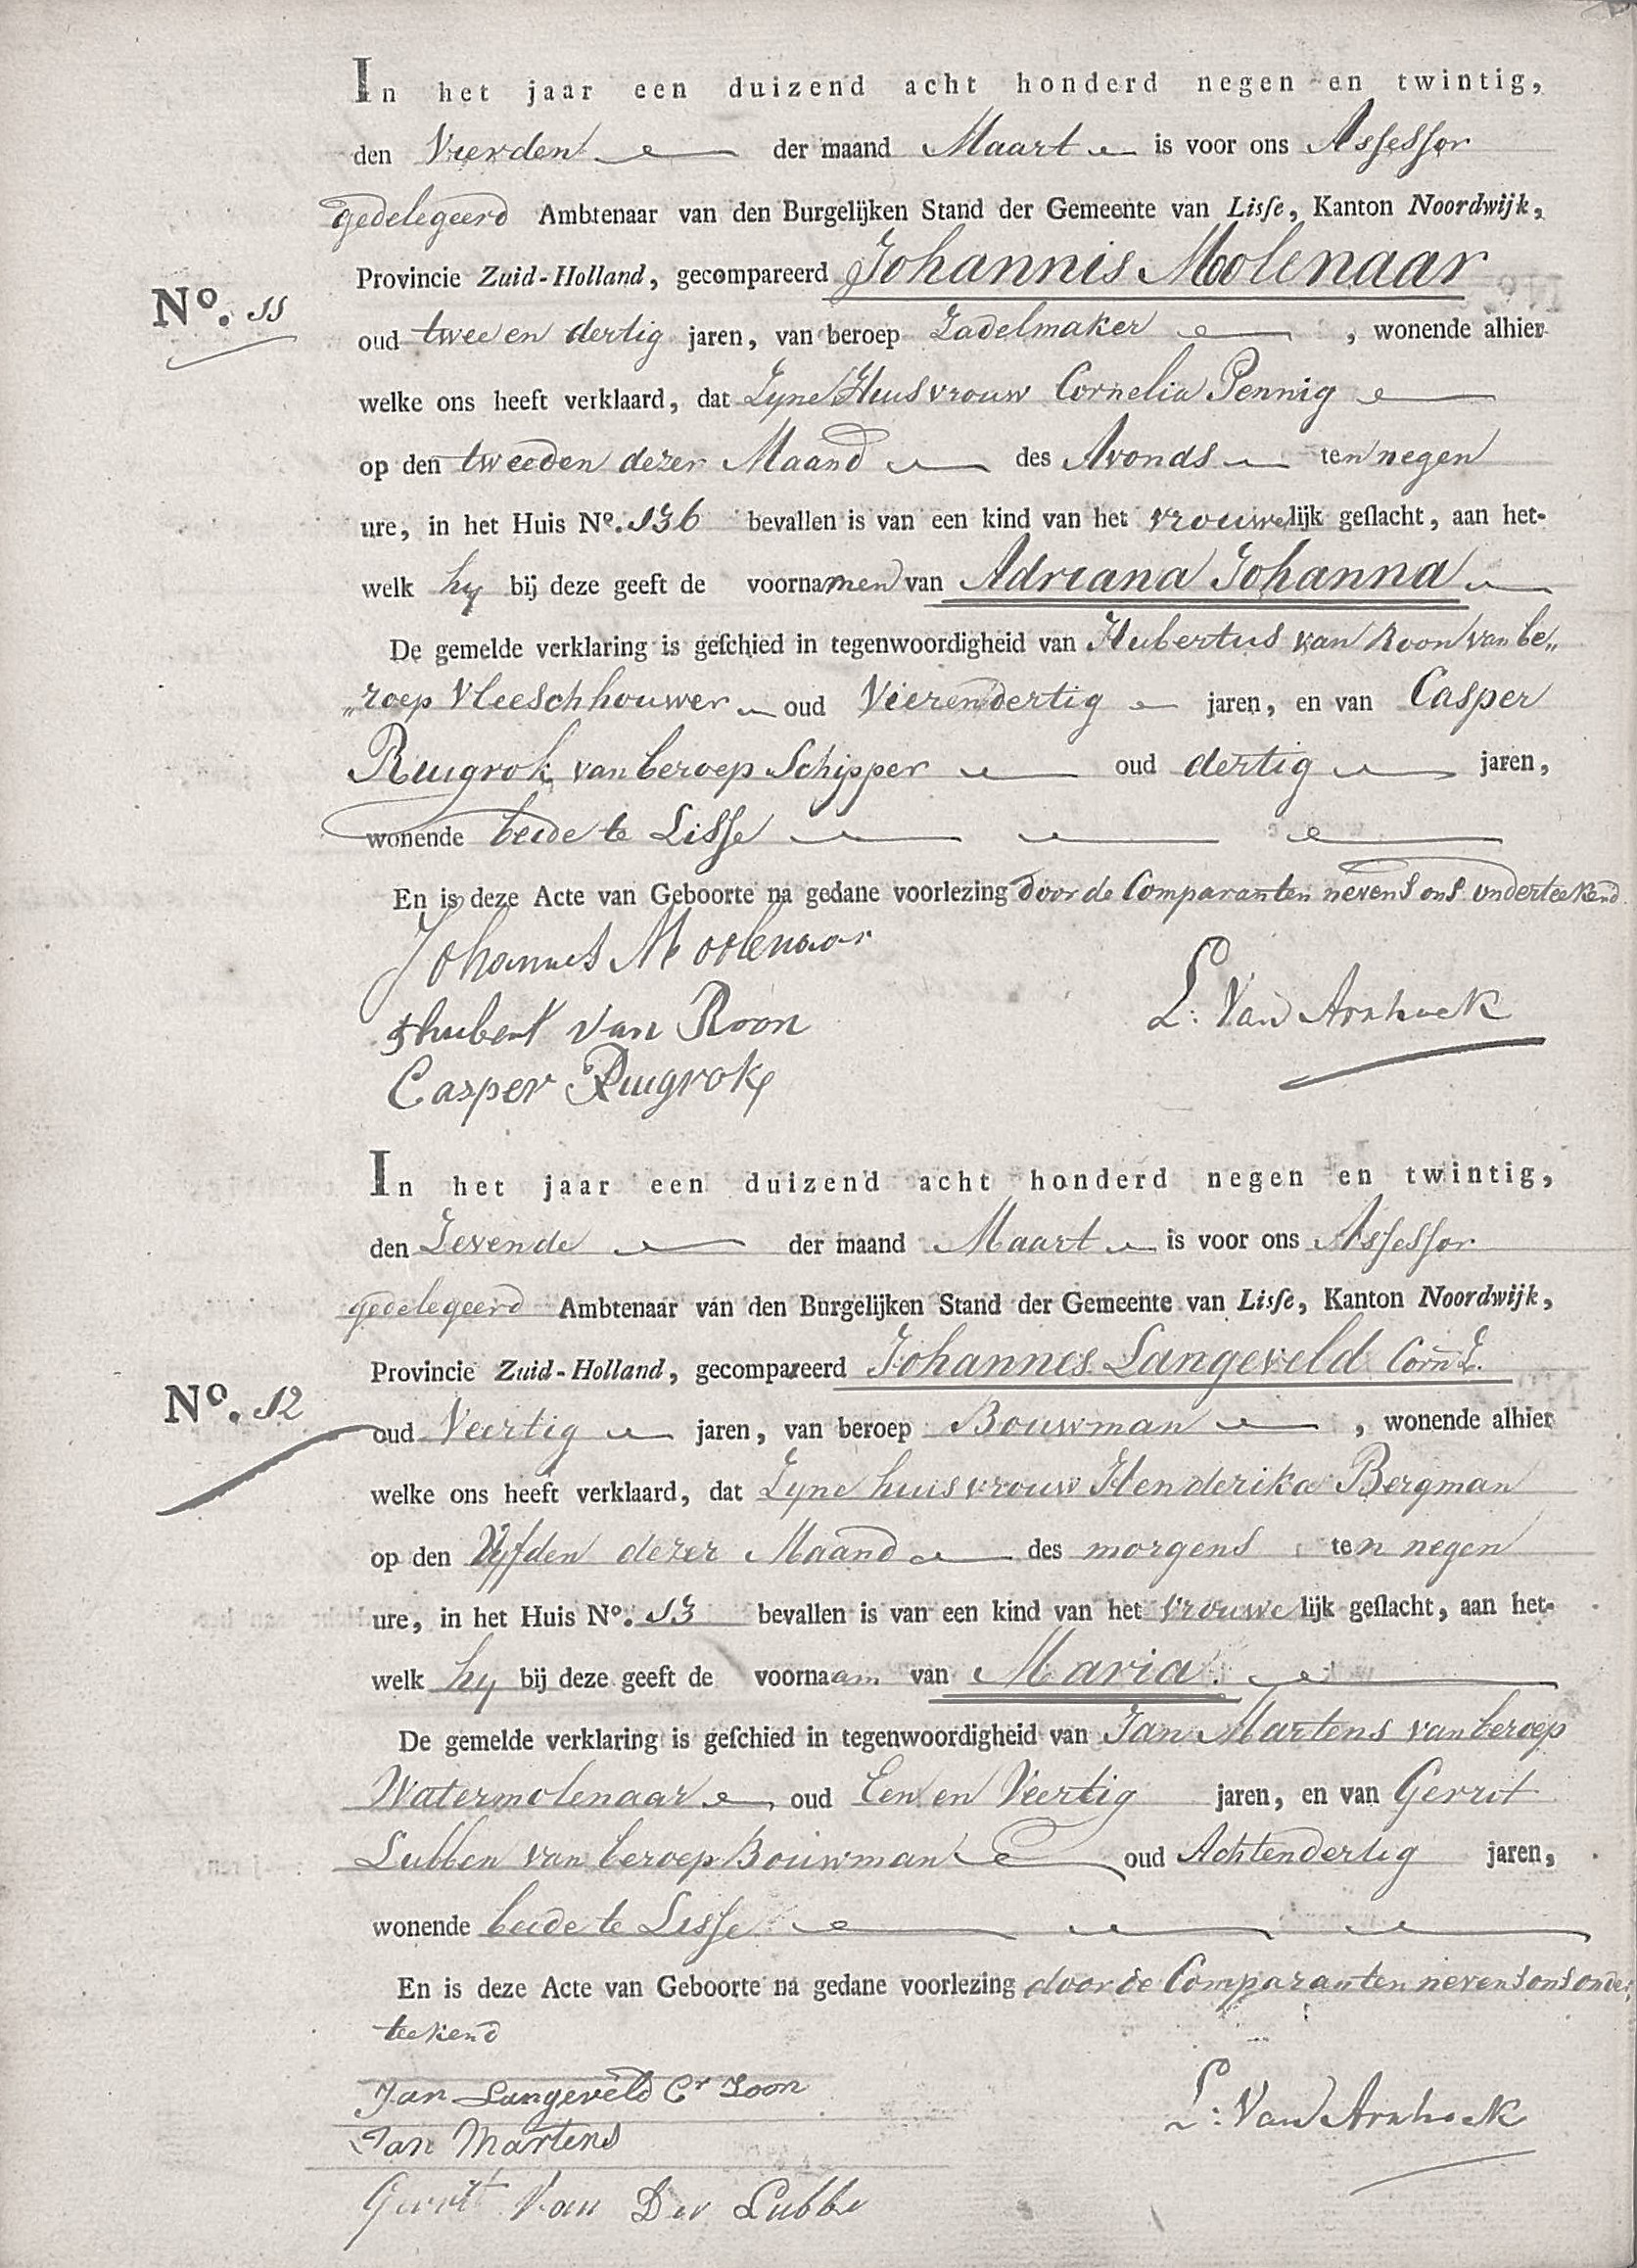 In het jaar een duizend acht honderd negen en twintig,
den Vierden der maand Maart is voor ons Assessor
gedelegeerd Ambtenaar van den Burgelijken Stand der Gemeente van Lisse, Kanton Noordwijk,
Provincie Zuid-Holland, gecompareerd Johannis Molenaar
No. 11
oud twee en dertig jaren, van beroep Zadelmaker, wonende alhier
welke ons heeft verklaard, dat Zyne Huisvrouw Cornelia Pennig
op den tweeden dezer Maand des Avonds ten negen
ure, in het Huis No. 136 bevallen is van een kind van het vrouwelijk geslacht, aan het-
welk hy bij deze geeft de voornamen van Adriana Johanna
De gemelde verklaring is geschied in tegenwoordigheid van Hubertus van Roon van be„
„roep Vleeschhouwer oud Vierendertig jaren, en van Casper
Ruigrok van beroep Schipper oud dertig jaren,
wonende beide te Lisse
En is deze Acte van Geboorte na gedane voorlezing door de Comparanten nevens ons onderteekend
Johannes Moolenaar
Hubert van Roon
L: Van Arnhoek
Casper Ruigrok
In het jaar een duizend acht honderd negen en twintig,
den Zevende der maand Maart is voor ons Assessor
gedelegeerd Ambtenaar van den Burgelijken Stand der Gemeente van Lisse, Kanton Noordwijk,
Provincie Zuid-Holland, gecompareerd Johannes Langeveld Corn Z.
No. 12
oud Veertig jaren, van beroep Bouwman, wonende alhier
welke ons heeft verklaard, dat Zyne huisvrouw Henderika Bergman
op den Vyfden dezer Maand des morgens ten negen
ure, in het Huis No. 13 bevallen is van een kind van het vrouwelijk geslacht, aan het-
welk hy bij deze geeft de voornaam van Maria.
De gemelde verklaring is geschied in tegenwoordigheid van Jan Martens van beroep
Watermolenaar oud Een en Veertig jaren, en van Gerrit
Lubben van beroep Bouwman oud Achtendertig jaren,
wonende beide te Lisse
En is deze Acte van Geboorte na gedane voorlezing door de Comparanten nevens ons onder„
teekend
Jan Langeveld Cr Zoon
Jan Martens
L: Van Arnhoek
Gerrit Van Der Lubbe